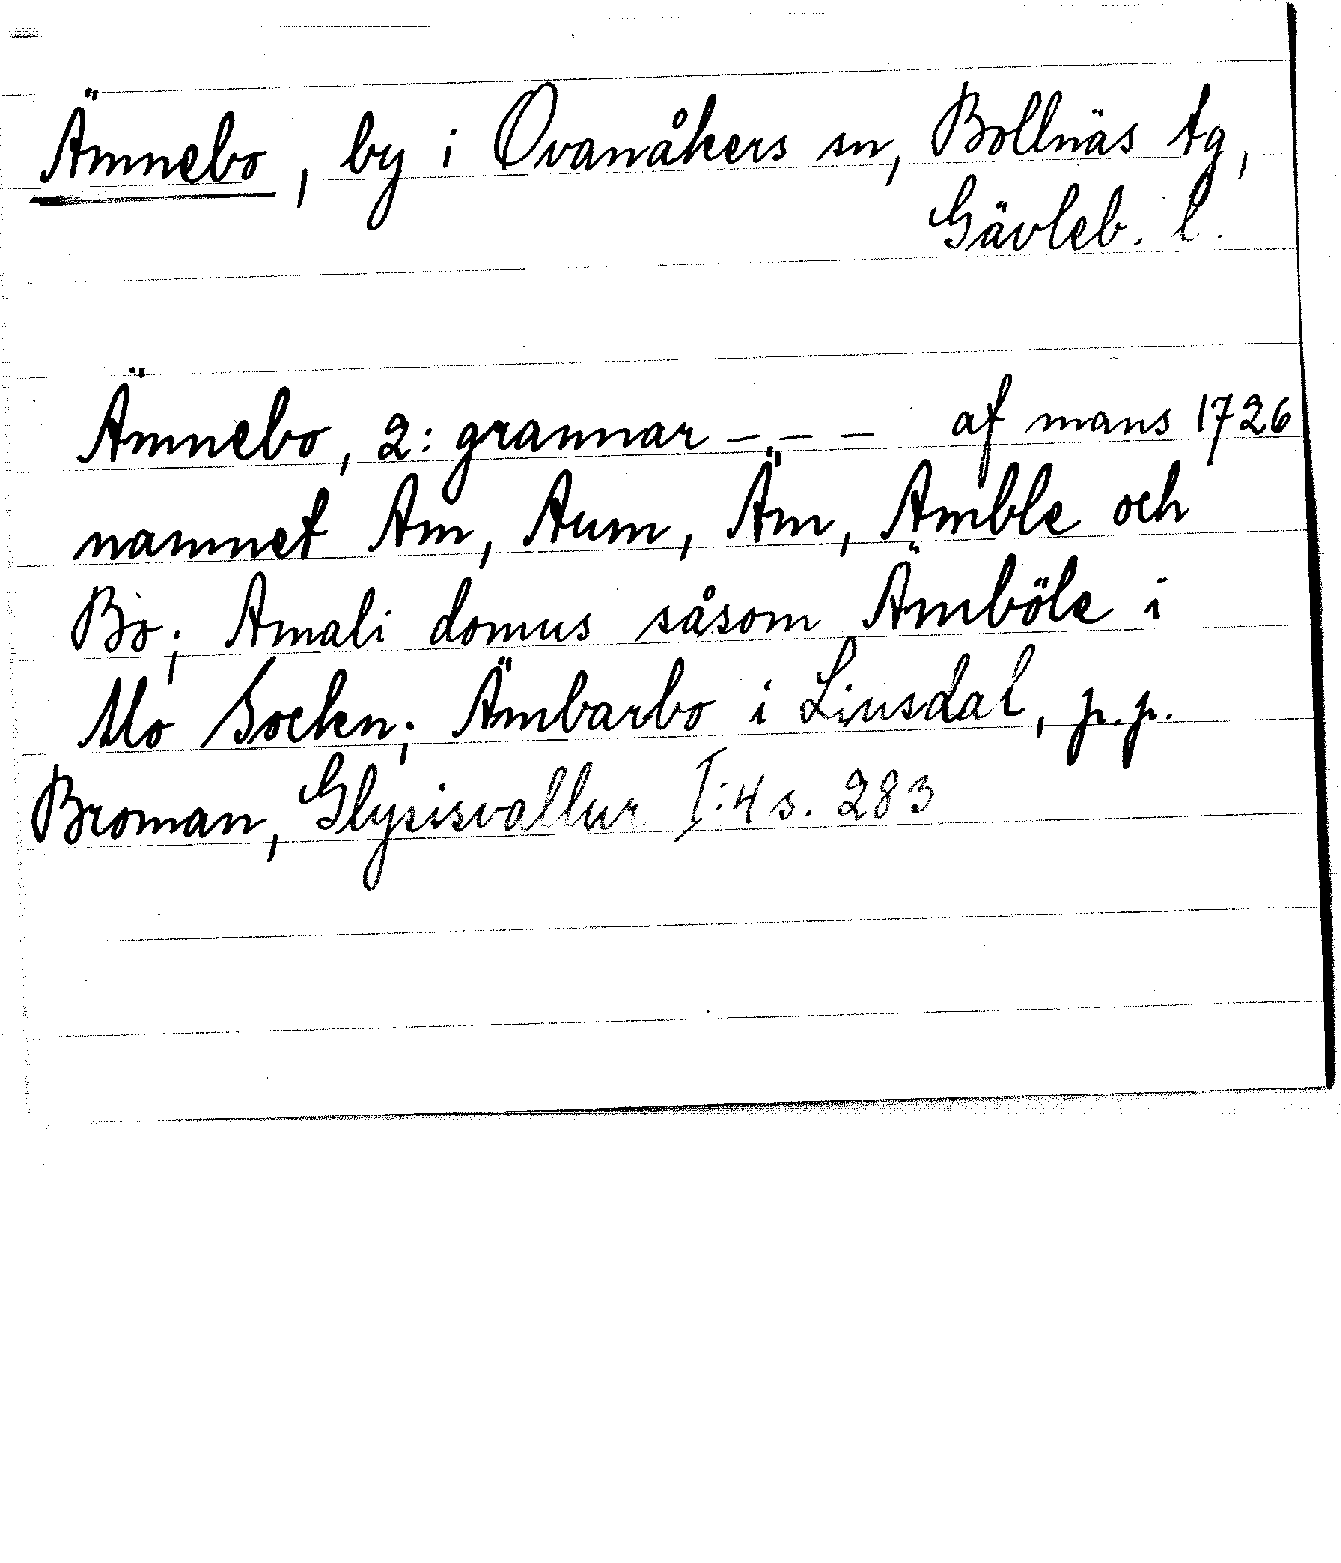 Ämnebo, by i Ovanåkers sn, Bollnäs tg,
Gävleb. l.
Ämnebo, 2: grannar – – – af mans 1726
namnet Am, Aum, Äm, Amble och
Bo; Amali domus såsom Ämböle i
Mo Socken; Ämbarbo i Liusdal, p.p.
Broman, Glysisvallur I:4 s. 283